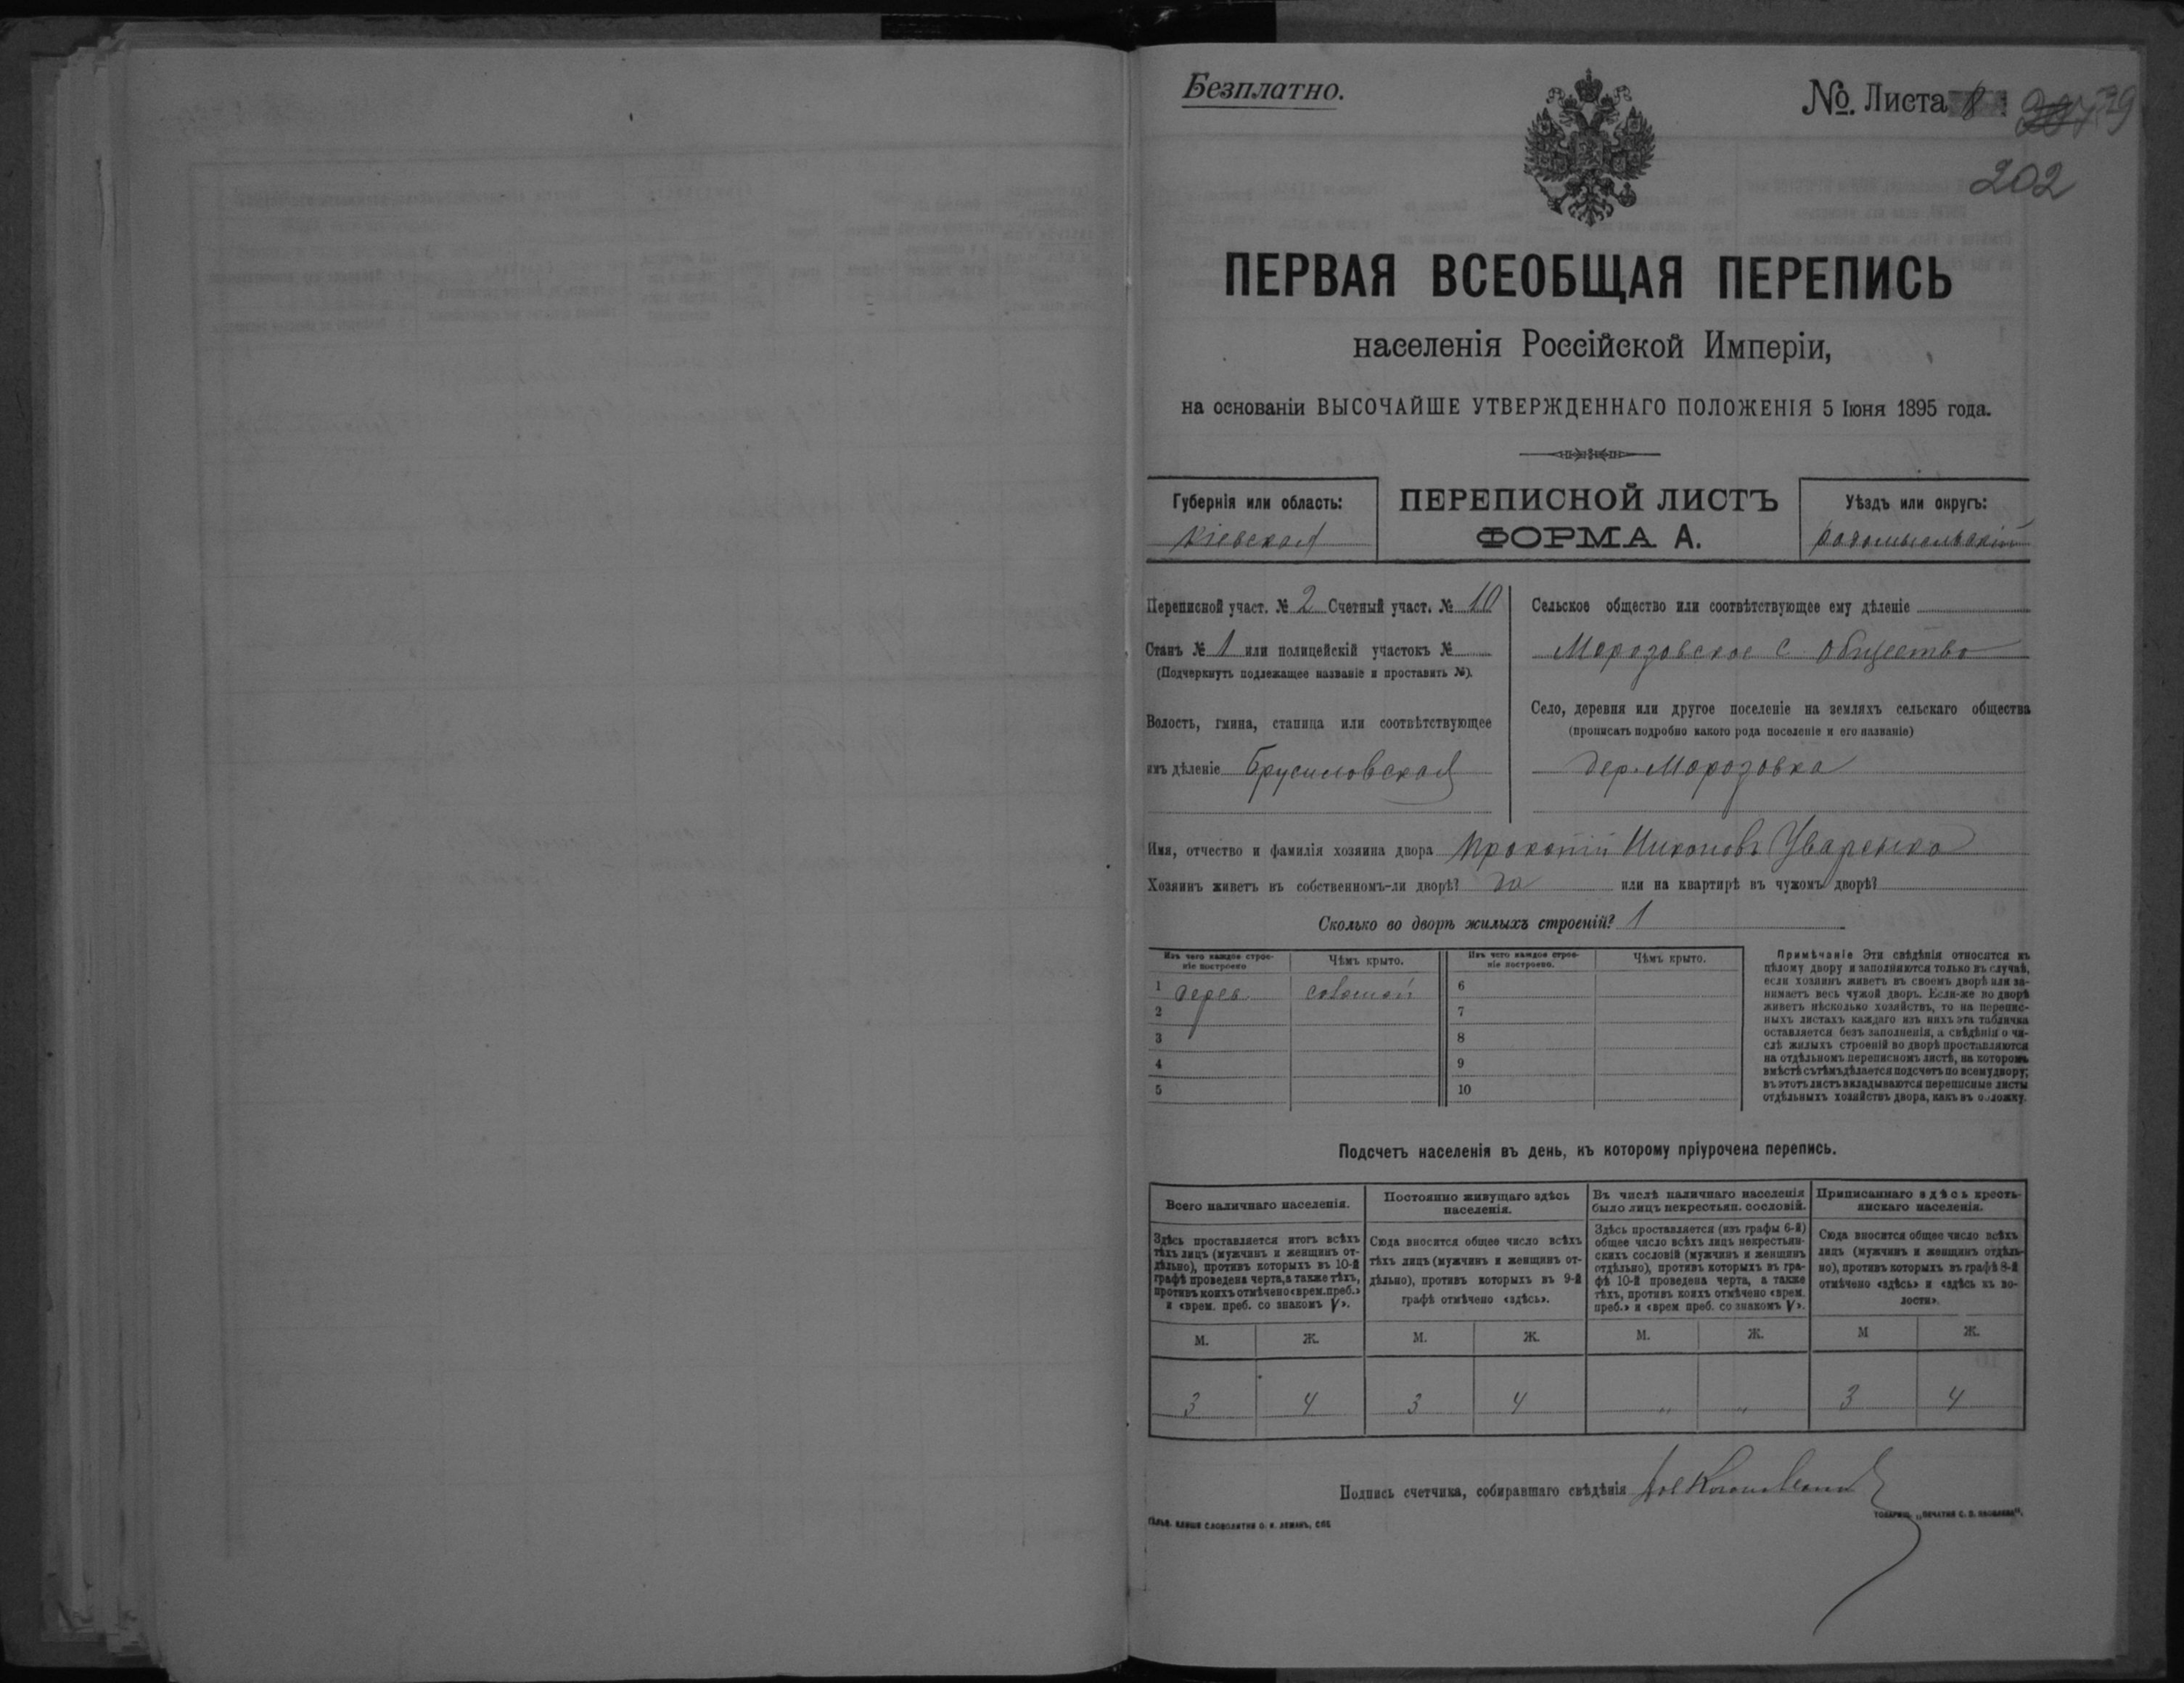 Безплатно.
№. Листа
202
ПЕРВАЯ ВСЕОБЩАЯ ПЕРЕПИСЬ
населенія Россійской Имперіи,
на основаніи ВЫСОЧАЙШЕ УТВЕРЖДЕННАГО ПОЛОЖЕНІЯ 5 Іюня 1895 года.
Губернія или область:
Кіевская
ПЕРЕПИСНОЙ ЛИСТЪ
ФОРМА А.
Уѣздъ или округъ:
Радомысльскій
Переписной участ. № 2 Счетный участ. № 10
Станъ № 1 или полицейскій участокъ №
(Подчеркнуть подлежащее названіе и проставить №).
Волость, гмина, станица или соотвѣтствующее
имъ дѣленіе Брусиловская
Сельское общество или соотвѣтствующее ему дѣленіе
Морозовское с общество
Село, деревня или другое поселеніе на земляхъ сельскаго общества
(прописать подробно какого рода поселеніе и его названіе)
дер. Морозовка
Имя, отчество и фамилія хозяина двора Прокопій Никоновъ Уваренко
Хозяинъ живетъ въ собственномъ-ли дворѣ? да или на квартирѣ въ чужомъ дворѣ?
Сколько во дворѣ жилыхъ строеній? 1
Изъ чего каждое строе-
ніе построено
Чѣмъ крыто.
Изъ чего каждое строе-
ніе построено.
Чѣмъ крыто.
1 дерев. соломой 6
2 7
3 8
4 9
5 10
Примѣчаніе Эти свѣдѣнія относятся къ
цѣлому двору и заполняются только въ случаѣ,
если хозяинъ живетъ въ своемъ дворѣ или за-
нимаетъ весь чужой дворъ. Если-же во дворѣ
живетъ нѣсколько хозяйствъ, то на перепис-
ныхъ листахъ каждаго изъ нихъ эта табличка
оставляется безъ заполненія, а свѣдѣнія о чи-
слѣ жилыхъ строеній во дворѣ проставляются
на отдѣльномъ переписномъ листѣ, на которомъ
вмѣстѣ съ тѣмъ дѣлается подсчетъ по всему двору;
въ этотъ листъ вкладываются переписные листы
отдѣльныхъ хозяйствъ двора, какъ въ обложку.
Подсчетъ населенія въ день, къ которому пріурочена перепись.
Всего наличнаго населенія.
Здѣсь проставляется итогъ всѣхъ
тѣхъ лицъ (мужчинъ и женщинъ от-
дѣльно), противъ которыхъ въ 10-й
графѣ проведена черта, а также тѣхъ,
противъ коихъ отмѣчено «врем. преб.»
и «врем. преб. со знакомъ V».
Постоянно живущаго здѣсь
населенія.
Сюда вносится общее число всѣхъ
тѣхъ лицъ (мужчинъ и женщинъ от-
дѣльно), противъ которыхъ въ 9-й
графѣ отмѣчено «здѣсь».
Въ числѣ наличнаго населенія
было лицъ некрестьян. сословій.
Здѣсь проставляется (изъ графы 6-й)
общее число всѣхъ лицъ некрестьян-
скихъ сословій (мужчинъ и женщинъ
отдѣльно), противъ которыхъ въ гра-
фѣ 10-й проведена черта, а также
тѣхъ, противъ коихъ отмѣчено «врем.
преб.» и «врем преб. со знакомъ V».
Приписаннаго здѣсь кресть-
янскаго населенія.
Сюда вносится общее число всѣхъ
лицъ (мужчинъ и женщинъ отдѣль-
но), противъ которыхъ въ графѣ 8-й
отмѣчено «здѣсь» и «здѣсь къ во-
лости».
М. Ж. М. Ж. М. Ж. М Ж.
3 4 3 4 „ „ 3 4
Подпись счетчика, собиравшаго свѣдѣнія